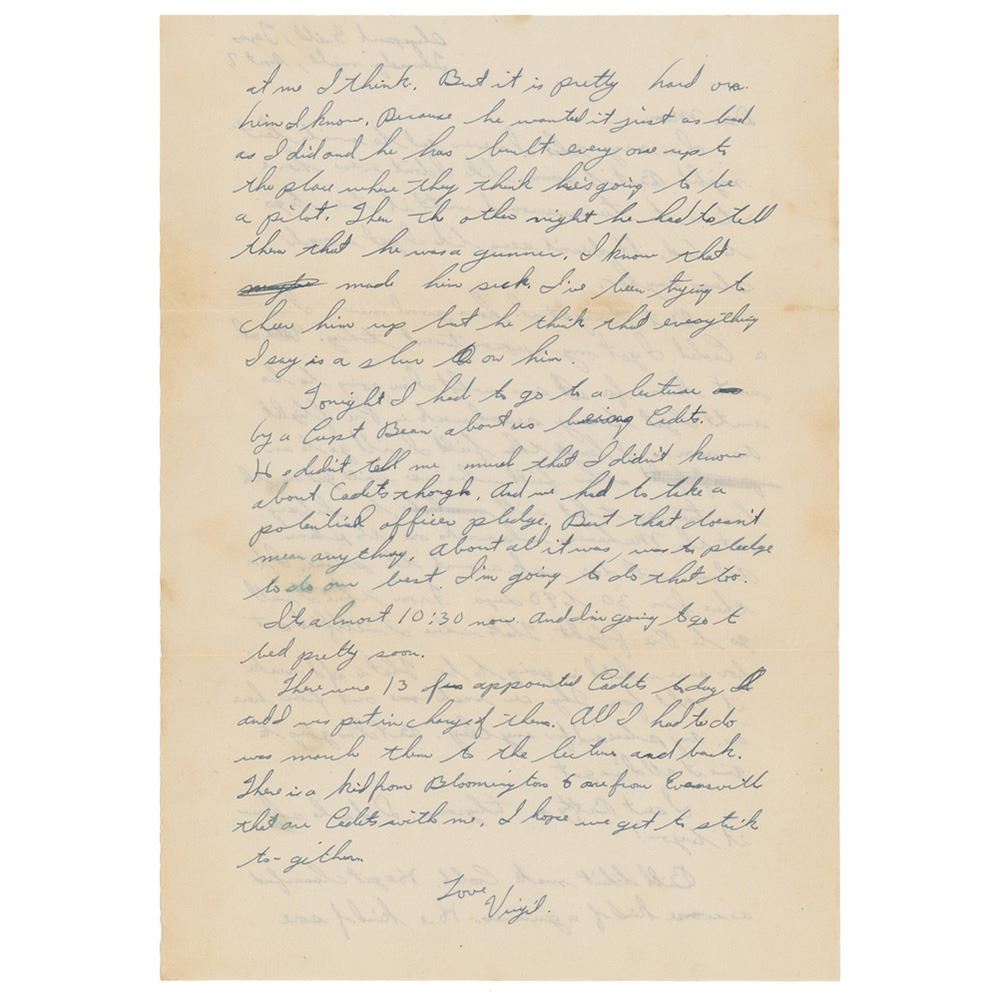 at me I think. But it is pretty hard on
him I know. Because he wanted it just as bad
as I did and he has built every one up to
the place where they think he's going to be
a pilot. Then the other night he had to tell
them that he was a gunner. I know that
made him sick. I've been trying to
cheer him up but he think that everything
I say is a slur on him.
Tonight I had to go to a lecture
by a Capt Bean about us being Cadets.
He didn't tell me much that I didn't know
about Cadets though. And we had to take a
potential officer pledge. But that doesn't
mean anything. About all it was, was to pledge
to do our best. I'm going to do that too.
Its almost 10:30 now. And I'm going to go t
bed pretty soon.
There were 13 appointed Cadets today
and I was put in charge of them. All I had to do
was march them to the lecture and back.
There is a kid from Bloomington & one from Evansville
that are Cadets with me. I hope we get to stick
to-gether.
Love
Virgil.